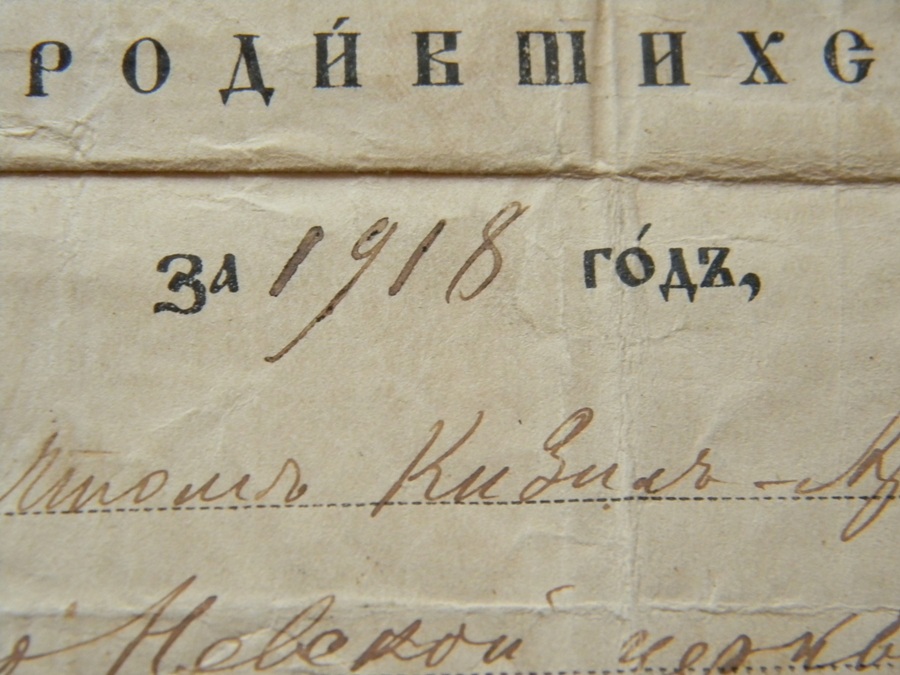 РОДИ́ВШИХС
За 1918 го́дъ,
Кизилъ-
Невской церкв